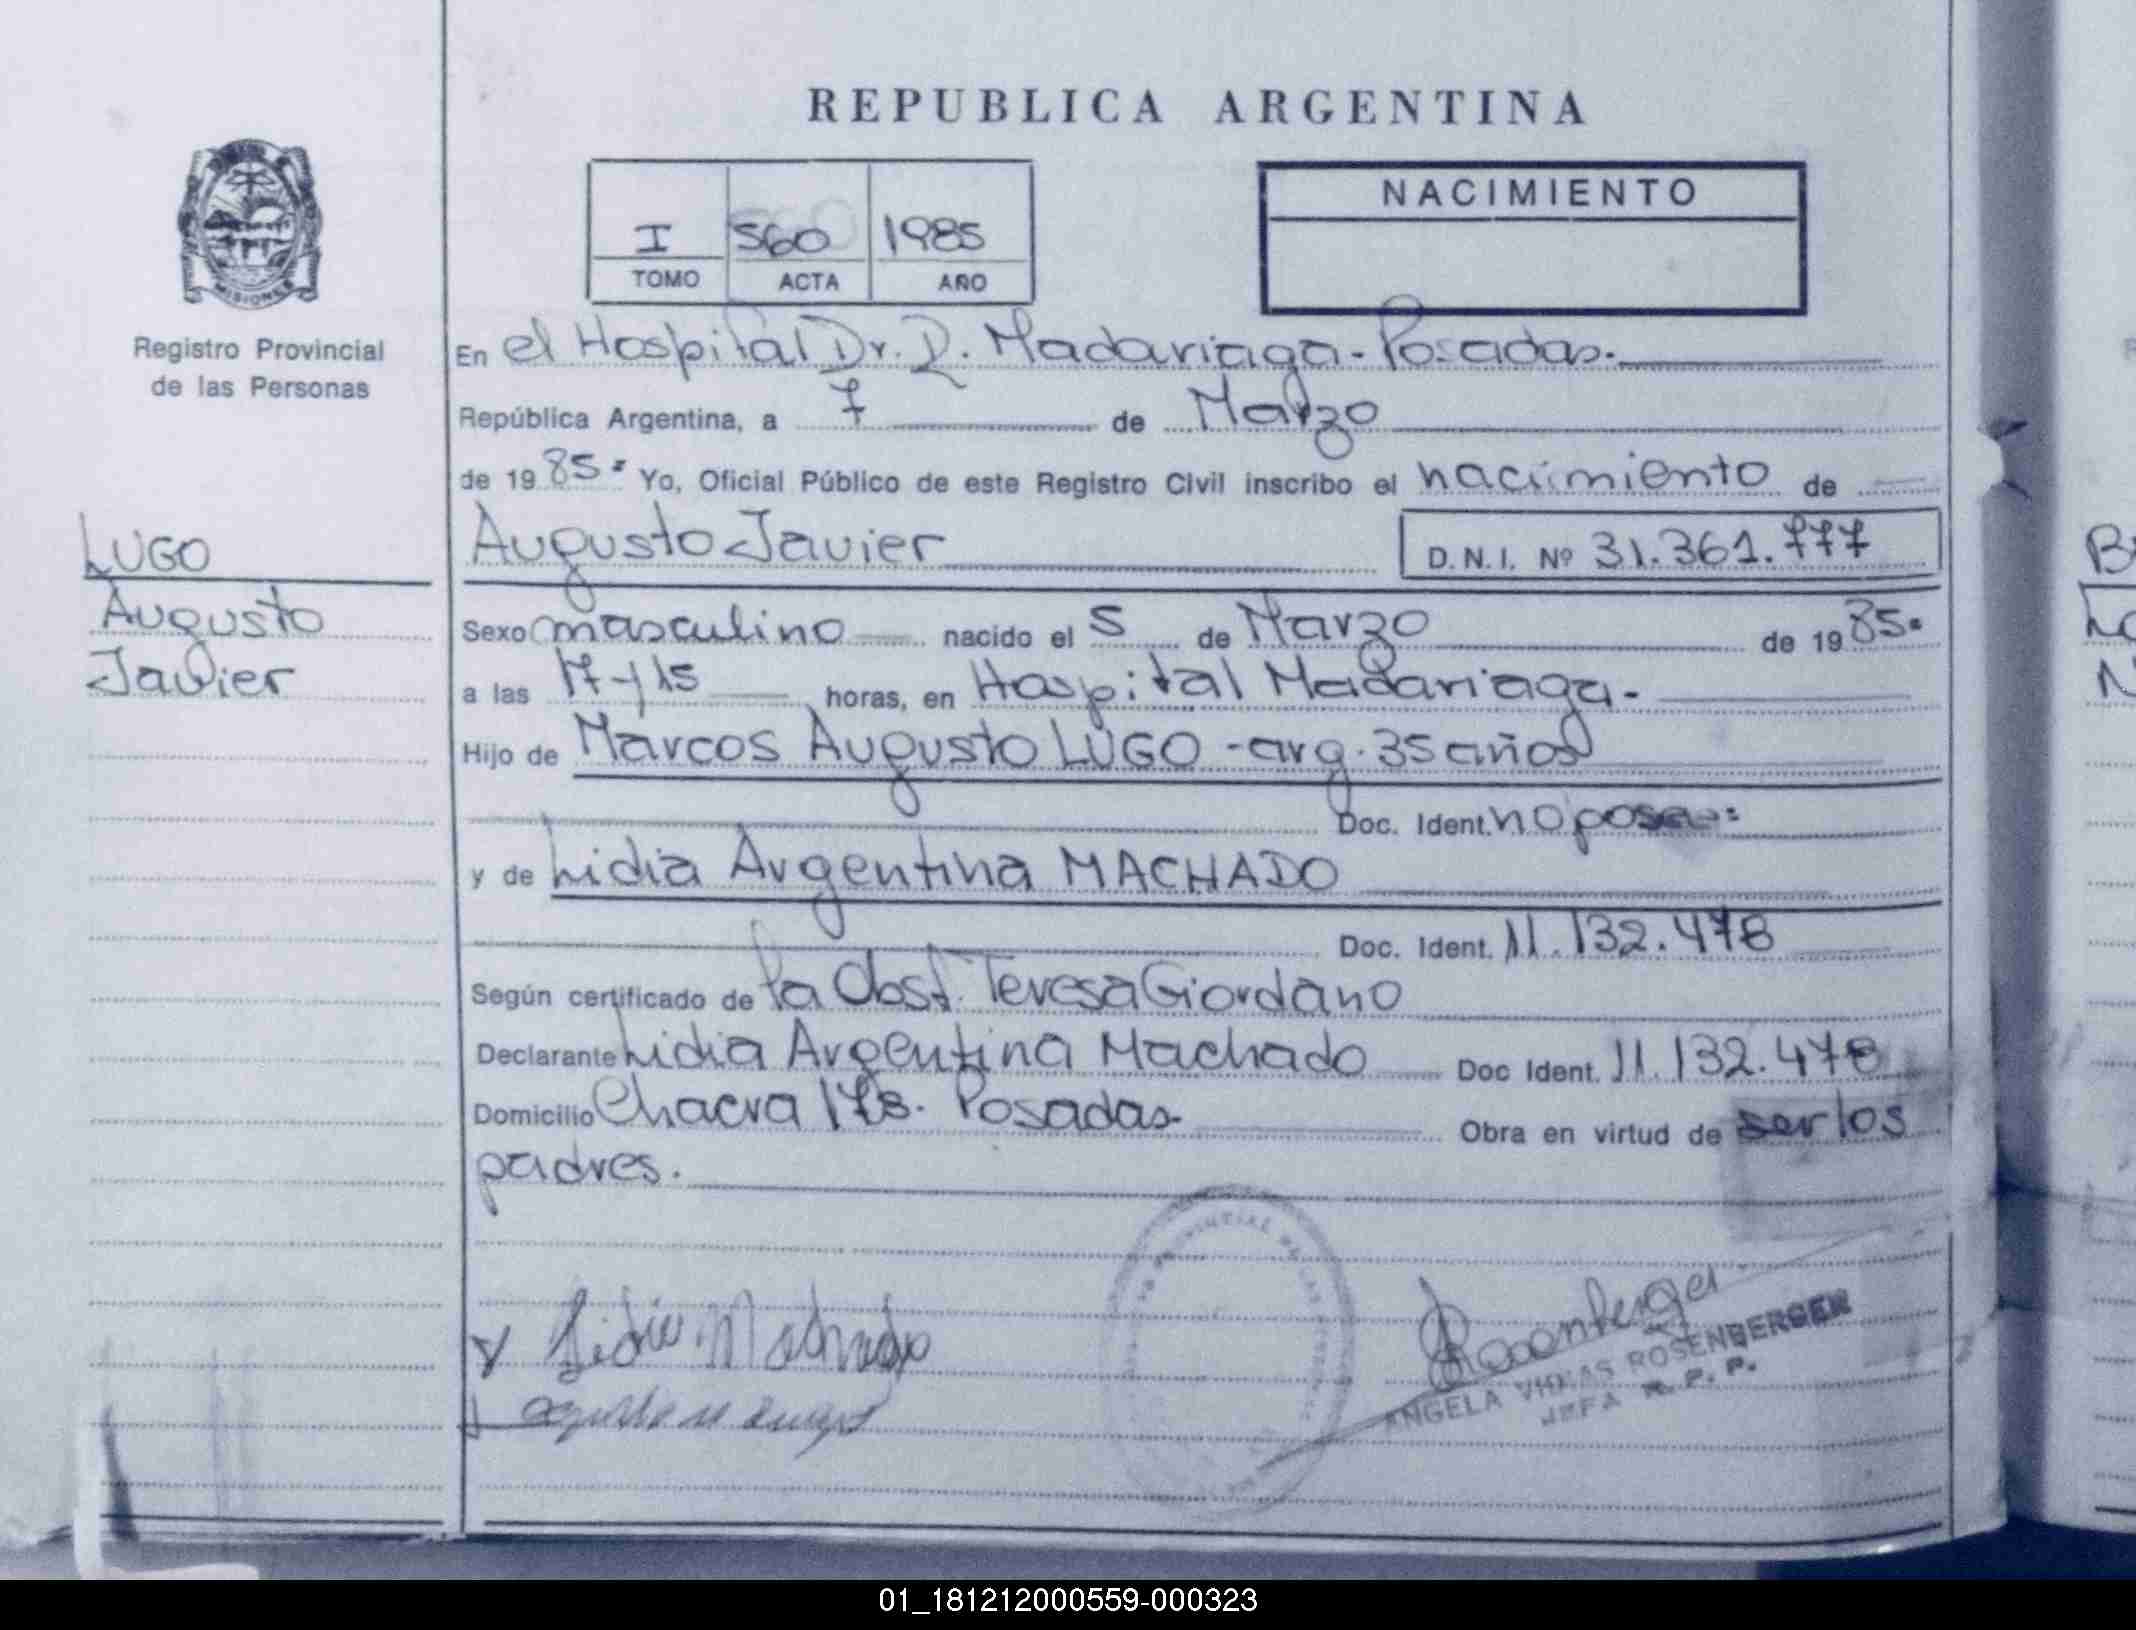 REPUBLICA ARGENTINA
NACIMIENTO
I 560 1985
TOMO ACTA AÑO
MISIONES
Registro Provincial
de las Personas
En el Hospital Dr. R. Madariaga - Posadas.
República Argentina, a 7 de Marzo
de 1985 = Yo, Oficial Público de este Registro Civil inscribo el nacimiento de
LUGO
Augusto
Javier
Augusto Javier D.N.I. Nº 31.361.777
Sexo masculino nacido el 5 de Marzo de 1985=
a las 17 y 15 horas, en Hospital Madariaga-
Hijo de Marcos Augusto LUGO - arg. 35 años
Doc. Ident. no posee=
y de Lidia Argentina MACHADO
Doc. Ident. 11.132.478
Según certificado de la Obst. Teresa Giordano
Declarante Lidia Argentina Machado Doc Ident. 11.132.478
Domicilio Chacra 178. Posadas- Obra en virtud de ser los
padres.
Lidia Machado
Rosenberger
ANGELA VIÑAS ROSENBERGER
JEFA R. P. P.
01_181212000559-000323